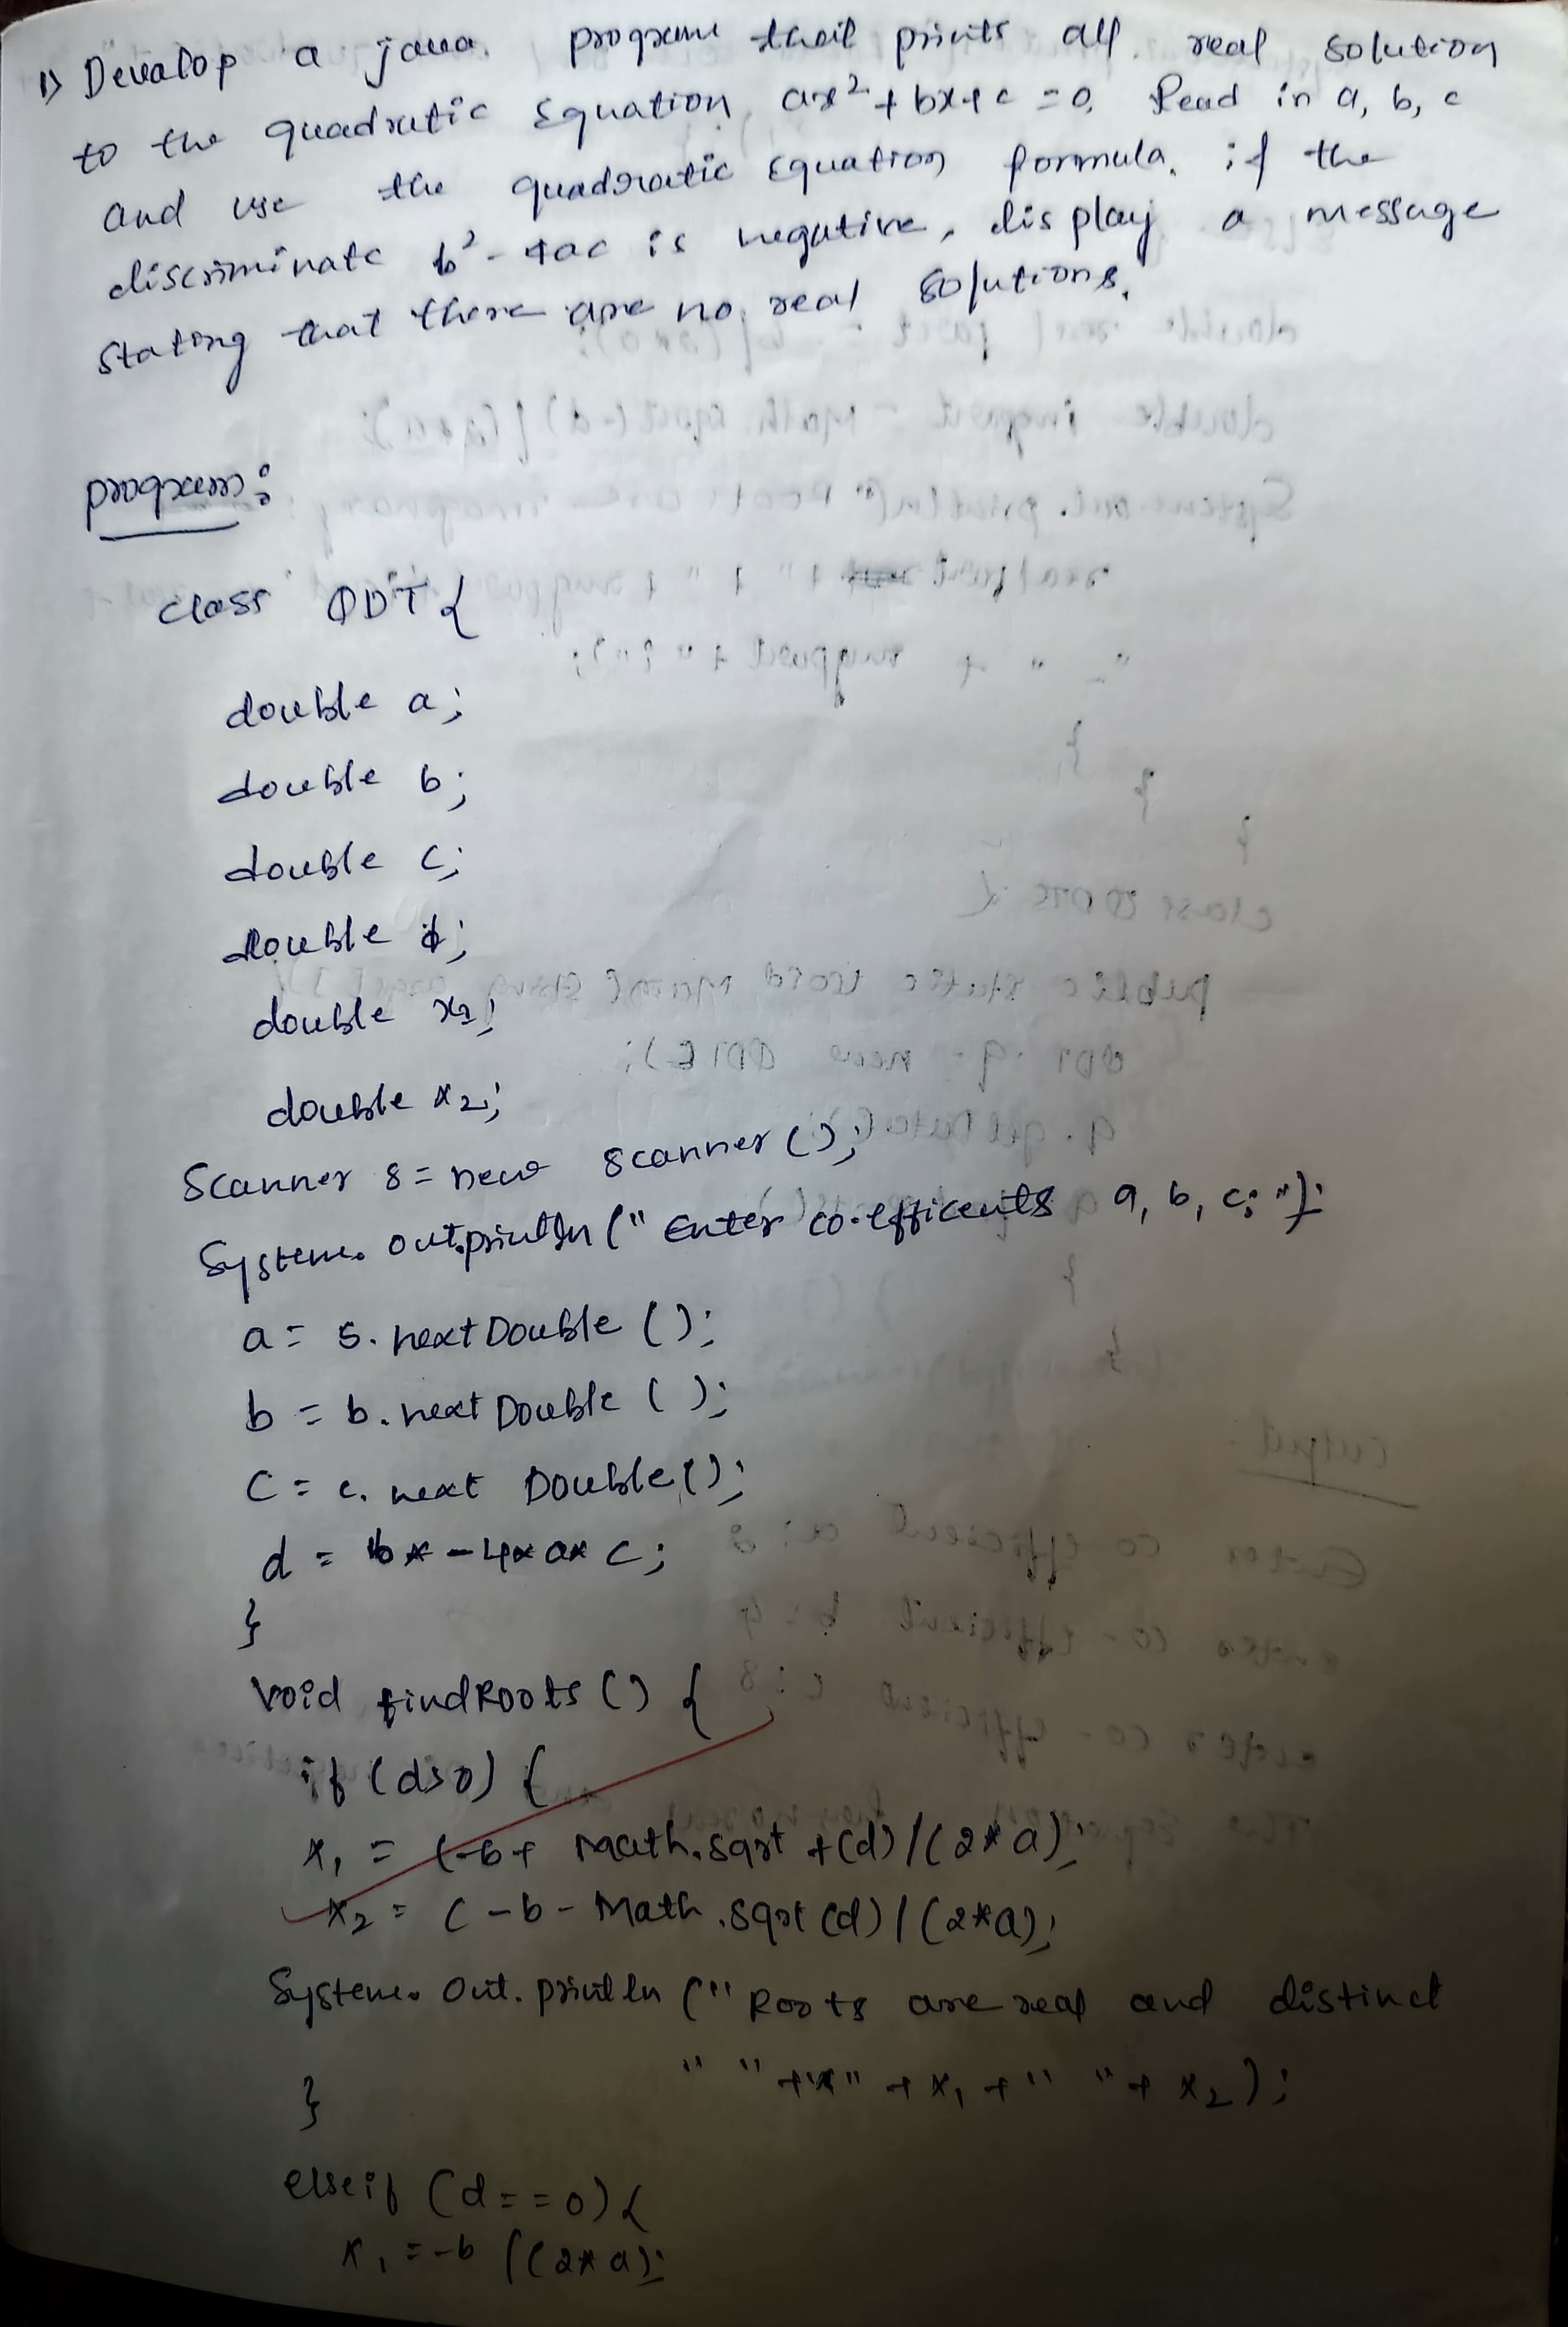 1) Develop a java program that prints all real solution
to the quadratic Equation ax² + bx + c = 0. Read in a, b, c
and use the quadratic Equation formula. if the
discriminate b² - 4ac is negative, display a message
stating that there are no real solutions.
program:
class QDT {
double a;
double b;
double c;
double d;
double x2;
double x2;
Scanner s = new scanner ();
System. out.println (" Enter co-efficents a, b, c; ");
a = s. nextDouble ();
b = b. nextDouble ( );
c = c. next Double();
d = b* - 4* a* c;
}
void findRoots () {
if (d>0) {
x1 = (-b+ Math.sqrt +(d) / (2* a);
x2 = (-b - Math .sqrt (d) / (2*a);
System. Out. println (" Roots are real and distinct
" " + + x1 + " " + x2 );
}
elseif (d==0) {
x1 = -b /(2* a);